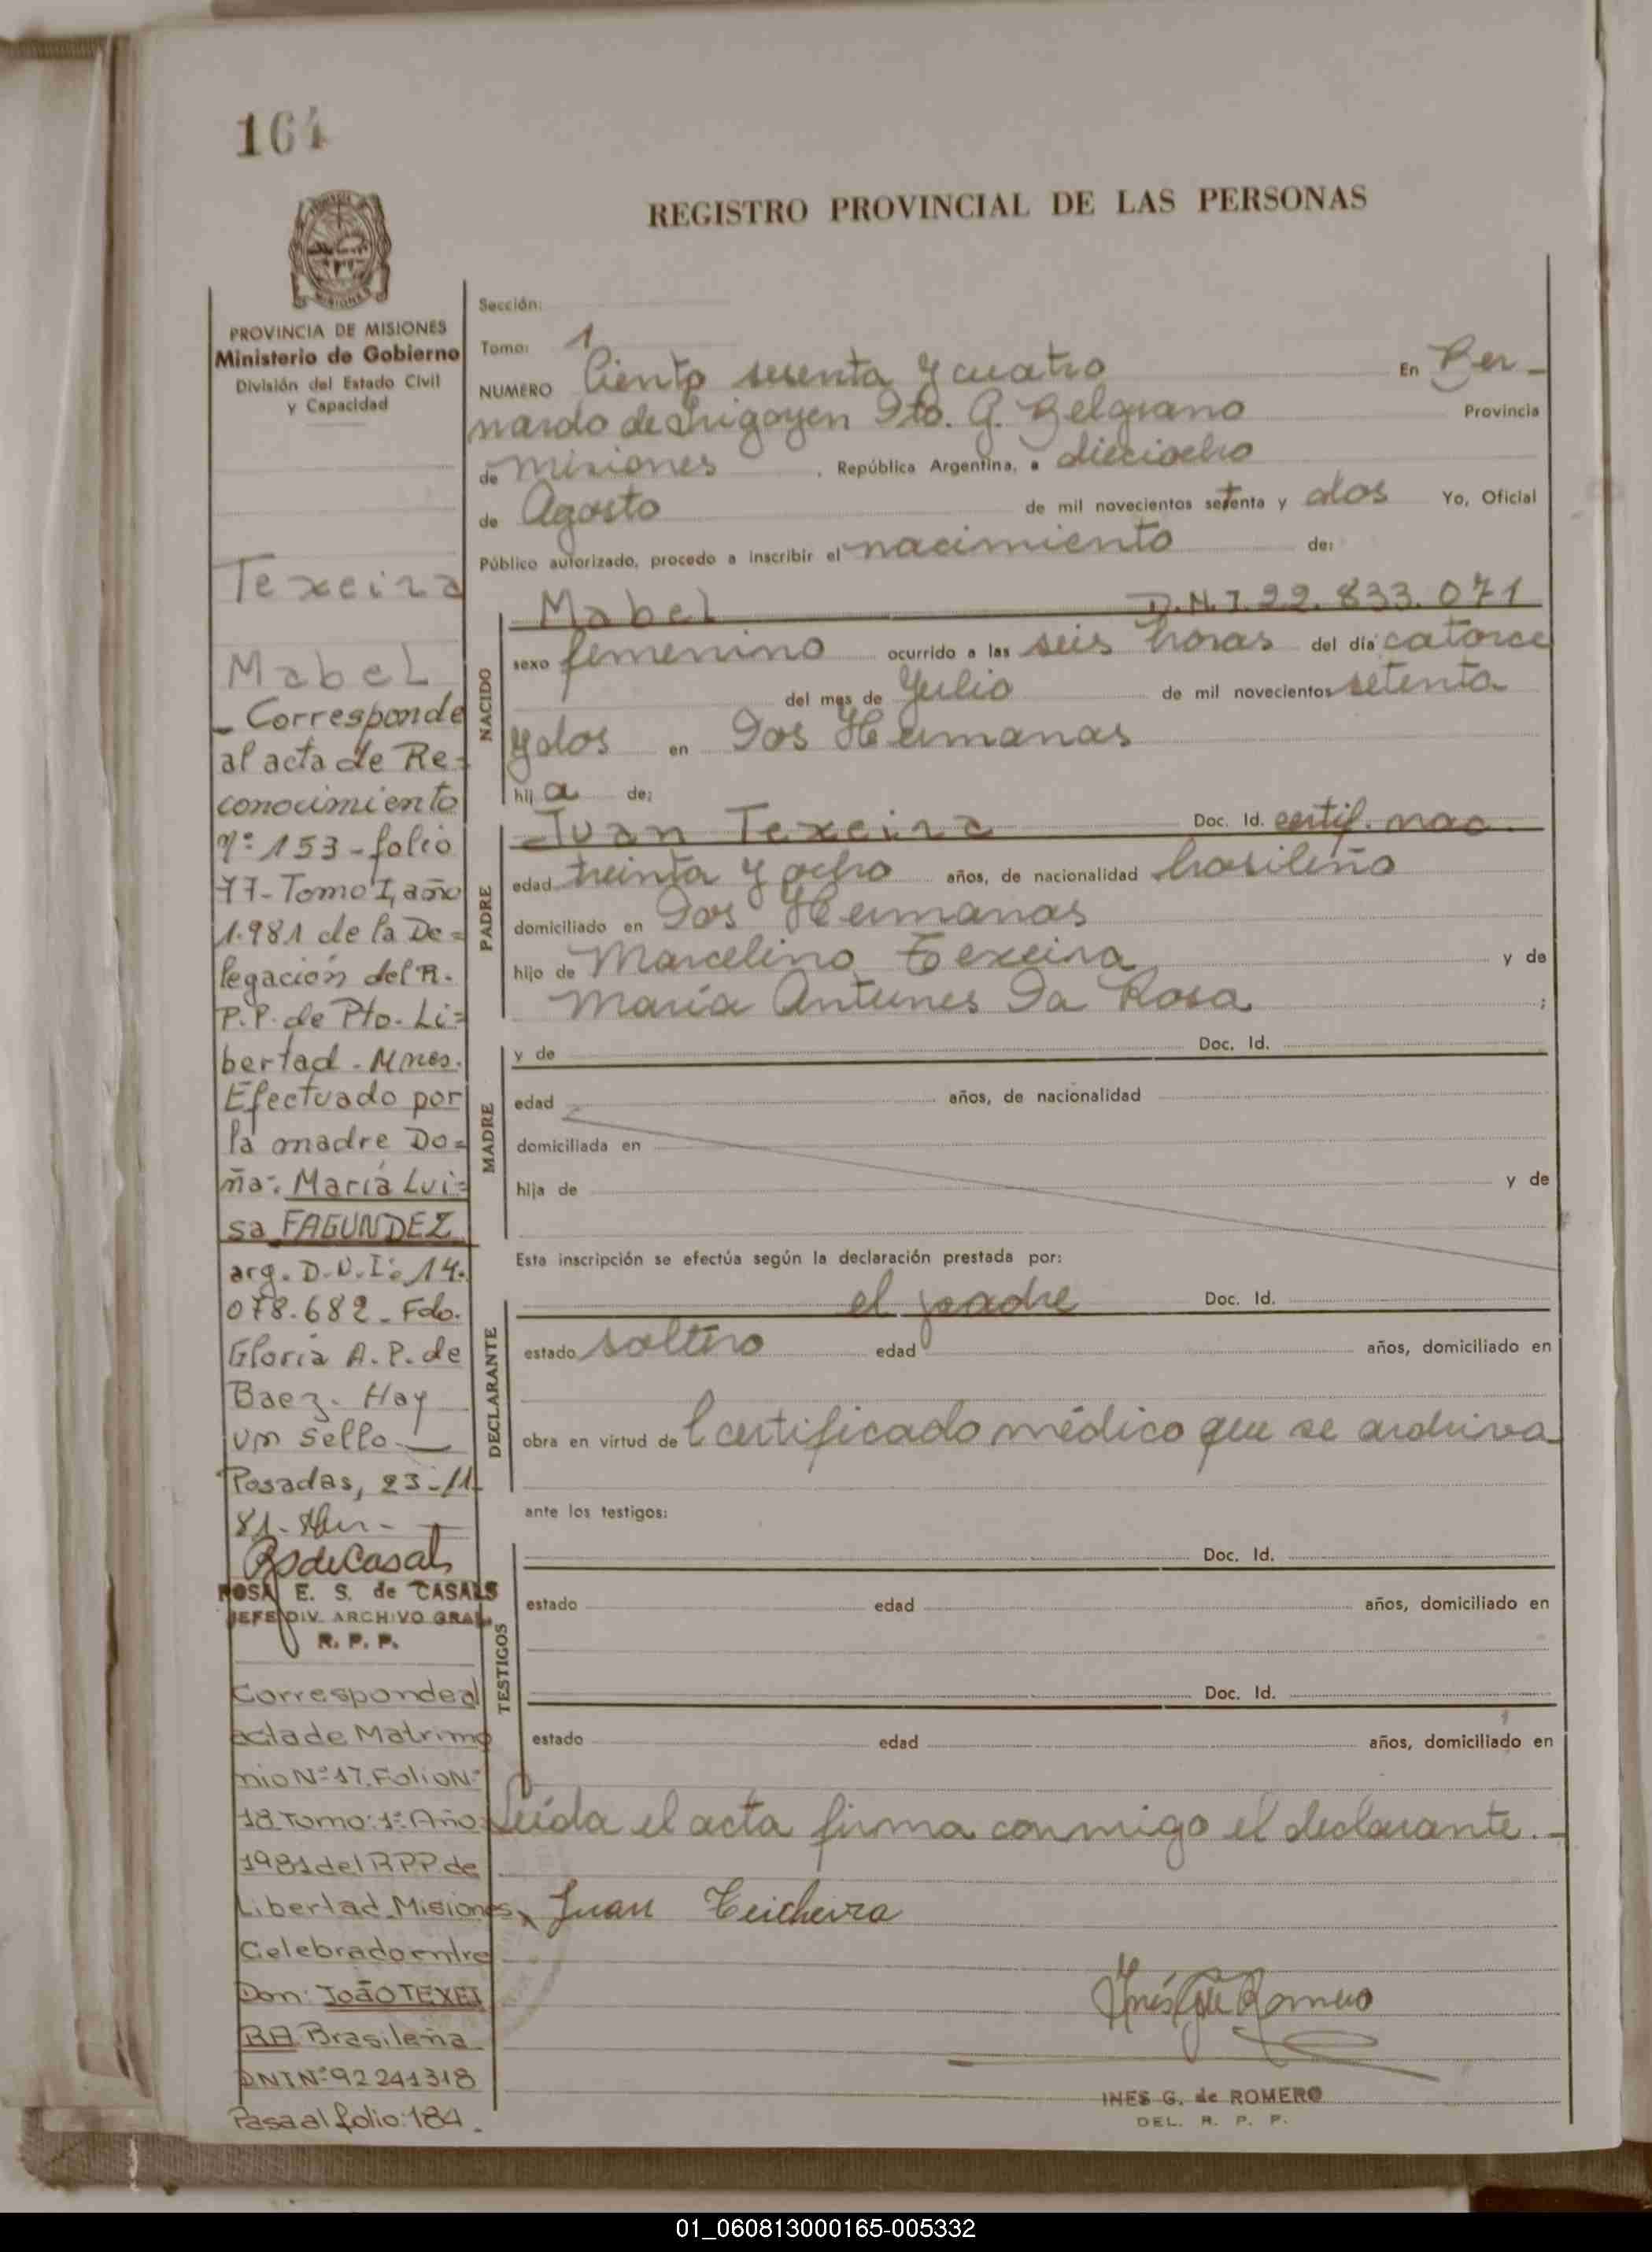 164
REGISTRO PROVINCIAL DE LAS PERSONAS
MISIONES
PROVINCIA DE MISIONES
Ministerio de Gobierno
División del Estado Civil
y Capacidad
Texeira
Mabel
_ Corresponde
al acta de Re=
conocimiento
nº 153 - folio
77 - Tomo I, año
1.981 de la De=
legación del R.
P.P. de Pto. Li=
bertad - Mnes.
Efectuado por
la madre Do=
ña: María Lui=
sa FAGUNDEZ
arg. D.N.I: 14.
078.682 - Fdo.
Gloria A. P. de
Baez - Hay
un sello
Posadas, 23-11-
81.
ROSA E. S. de CASALS
JEFE DIV. ARCHIVO GRAL
R. P. P.
Corresponde al
acta de Matrimo
nio Nº 17. Folio Nº
18 Tomo: 1º Año:
1981 del R.P.P. de
Libertad Misiones,
Celebrado entre
Don: JOÃO TEXEI
RA Brasileña
DNI Nº 92241318
Pasa al folio: 184.
Sección:
Tomo: 1
NUMERO Ciento sesenta y cuatro En Ber-
nardo de Irigoyen Dto. G. Belgrano Provincia
de Misiones, República Argentina, a dieciocho
de Agosto de mil novecientos setenta y dos Yo, Oficial
Público autorizado, procedo a inscribir el nacimiento de:
NACIDO
Mabel D.N.I 22.833.071
sexo femenino ocurrido a las seis horas del día catorce
del mes de Julio de mil novecientos setenta
y dos en Dos Hermanas
hij a de:
PADRE
Juan Texeira Doc. Id. certif. nac.
edad treinta y ocho años, de nacionalidad brasileño
domiciliado en Dos Hermanas
hijo de Marcelino Texeira y de
María Antunes Da Rosa ;
MADRE
y de Doc. Id.
edad años, de nacionalidad
domiciliada en
hija de y de
Esta inscripción se efectúa según la declaración prestada por:
DECLARANTE
el padre Doc. Id.
estado soltero edad años, domiciliado en
obra en virtud de l certificado médico que se archiva
ante los testigos:
TESTIGOS
Doc. Id.
estado edad años, domiciliado en
Doc. Id.
estado edad años, domiciliado en
Leída el acta firma conmigo el declarante.-
Juan Teicheira
Inés G. de Romero
INES G. de ROMERO
DEL. R. P. P.
01_060813000165-005332